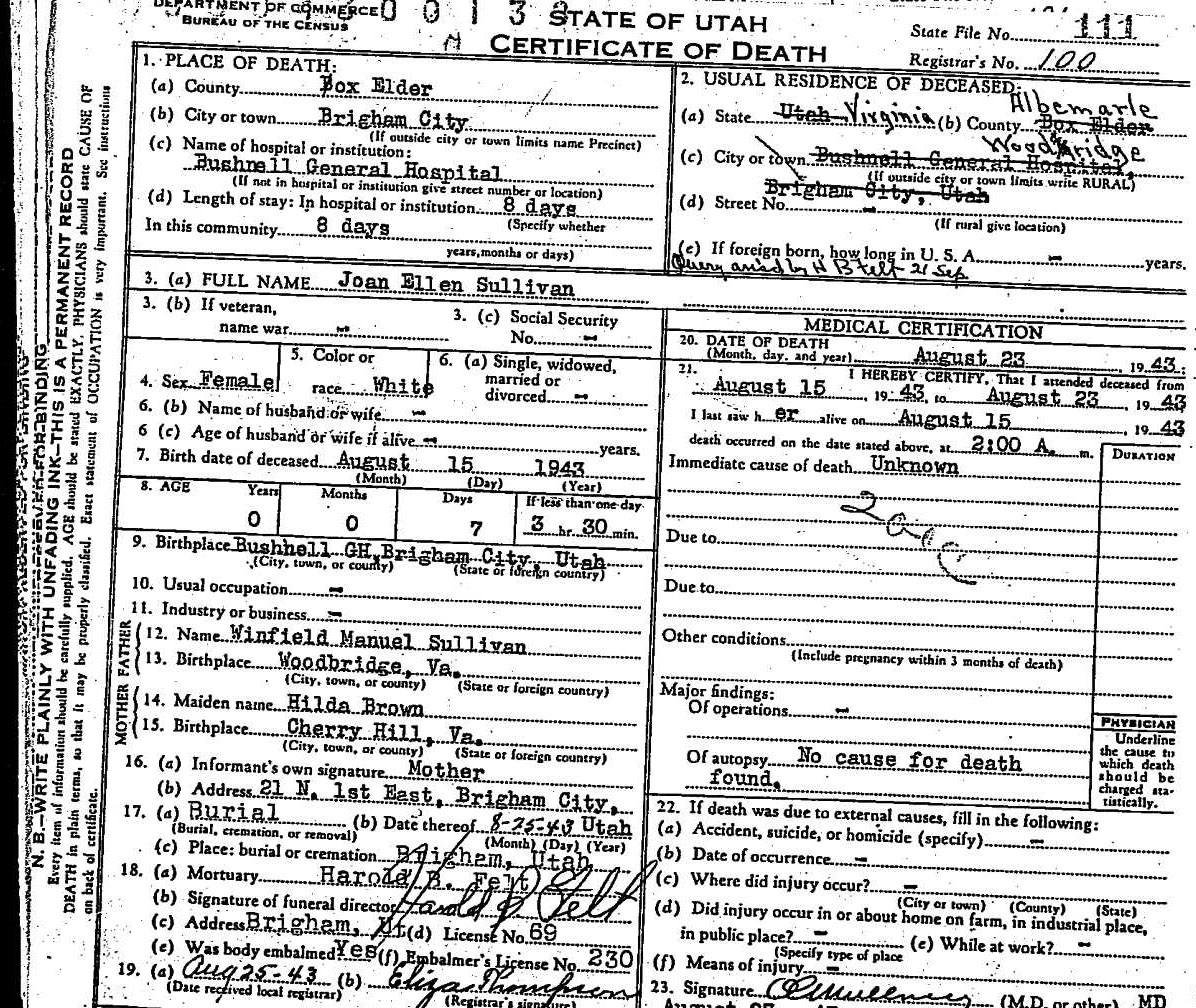 DEPARTMENT OF COMMERCE
BUREAU OF THE CENSUS
STATE OF UTAH
CERTIFICATE OF DEATH
State File No. 111
Registrar's No. 100
N. B.—WRITE PLAINLY WITH UNFADING INK—THIS IS A PERMANENT RECORD
Every item of information should be carefully supplied. AGE should be stated EXACTLY. PHYSICIANS should state CAUSE OF
DEATH in plain terms, so that it may be properly classified. Exact statement of OCCUPATION is very important. See instructions
on back of certificate.
1. PLACE OF DEATH:
(a) County Box Elder
(b) City or town Brigham City
(If outside city or town limits name Precinct)
(c) Name of hospital or institution:
Bushnell General Hospital
(If not in hospital or institution give street number or location)
(d) Length of stay: In hospital or institution 8 days
(Specify whether
In this community 8 days
years, months or days)
2. USUAL RESIDENCE OF DECEASED:
Albemarle
(a) State Utah Virginia (b) County Box Elder
Woodbridge
(c) City or town Bushnell General Hospital,
(If outside city or town limits write RURAL)
Brigham City, Utah
(d) Street No. -
(If rural give location)
(e) If foreign born, how long in U. S. A. - years.
Query ansd by H B Felt 21 Sep
3. (a) FULL NAME Joan Ellen Sullivan
3. (b) If veteran,
name war -
3. (c) Social Security
No. -
4. Sex Female
5. Color or
race White
6. (a) Single, widowed,
married or
divorced -
6. (b) Name of husband or wife -
6 (c) Age of husband or wife if alive - years.
7. Birth date of deceased August 15 1943
(Month) (Day) (Year)
8. AGE Years Months Days If less than one day
0 0 7 3 hr. 30 min.
9. Birthplace Bushnell GH, Brigham City, Utah
(City, town, or county) (State or foreign country)
10. Usual occupation -
11. Industry or business -
FATHER
12. Name Winfield Manuel Sullivan
13. Birthplace Woodbridge, Va.
(City, town, or county) (State or foreign country)
MOTHER
14. Maiden name Hilda Brown
15. Birthplace Cherry Hill, Va.
(City, town, or county) (State or foreign country)
16. (a) Informant's own signature Mother
(b) Address 21 N. 1st East, Brigham City,
17. (a) Burial (b) Date thereof 8-25-43 Utah
(Burial, cremation, or removal) (Month) (Day) (Year)
(c) Place: burial or cremation Brigham, Utah
18. (a) Mortuary Harold B. Felt
(b) Signature of funeral director Harold B Felt
(c) Address Brigham, Ut (d) License No. 69
(e) Was body embalmed Yes (f) Embalmer's License No. 230
19. (a) Aug 25-43 (b) Eliza Thompson
(Date received local registrar) (Registrar's signature)
MEDICAL CERTIFICATION
20. DATE OF DEATH
(Month, day, and year) August 23 , 19 43
21. I HEREBY CERTIFY, That I attended deceased from
August 15 , 19 43, to August 23 , 19 43
I last saw h er alive on August 15 , 19 43
death occurred on the date stated above, at 2:00 A. m.
DURATION
Immediate cause of death Unknown
Due to
Due to
Other conditions
(Include pregnancy within 3 months of death)
Major findings:
Of operations -
Of autopsy No cause for death
found.
PHYSICIAN
Underline
the cause to
which death
should be
charged sta-
tistically.
22. If death was due to external causes, fill in the following:
(a) Accident, suicide, or homicide (specify) -
(b) Date of occurrence -
(c) Where did injury occur? -
(City or town) (County) (State)
(d) Did injury occur in or about home on farm, in industrial place,
in public place? - (e) While at work? -
(Specify type of place
(f) Means of injury -
23. Signature (M.D. or other) MD